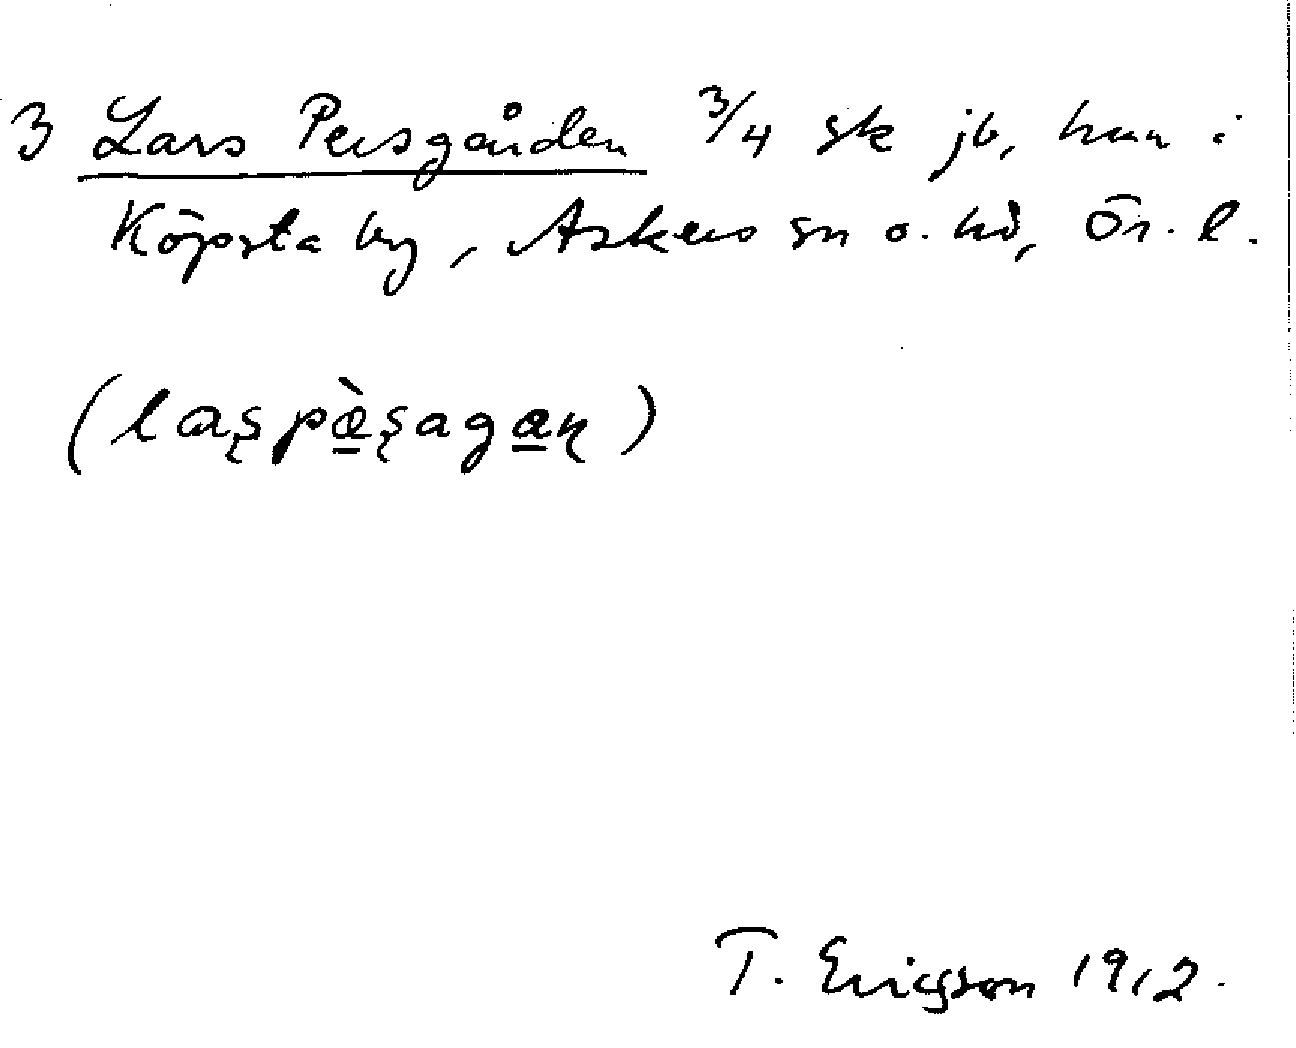 3 Lars Persgården 3/4 sk jb, hmn i
Köpsta by, Askers sn o. hd, Ör. l.
(laʂpæ̠̀ʂaga̠ɳ)
T. Ericsson 1912.